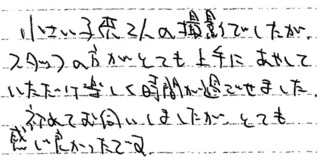 小さい子供2人の撮影でしたが、
スタッフの方がとても上手にあやして
いただけ楽しく時間が過ごせました。
初めてお伺いしましたが、とても
感じ良かったです。